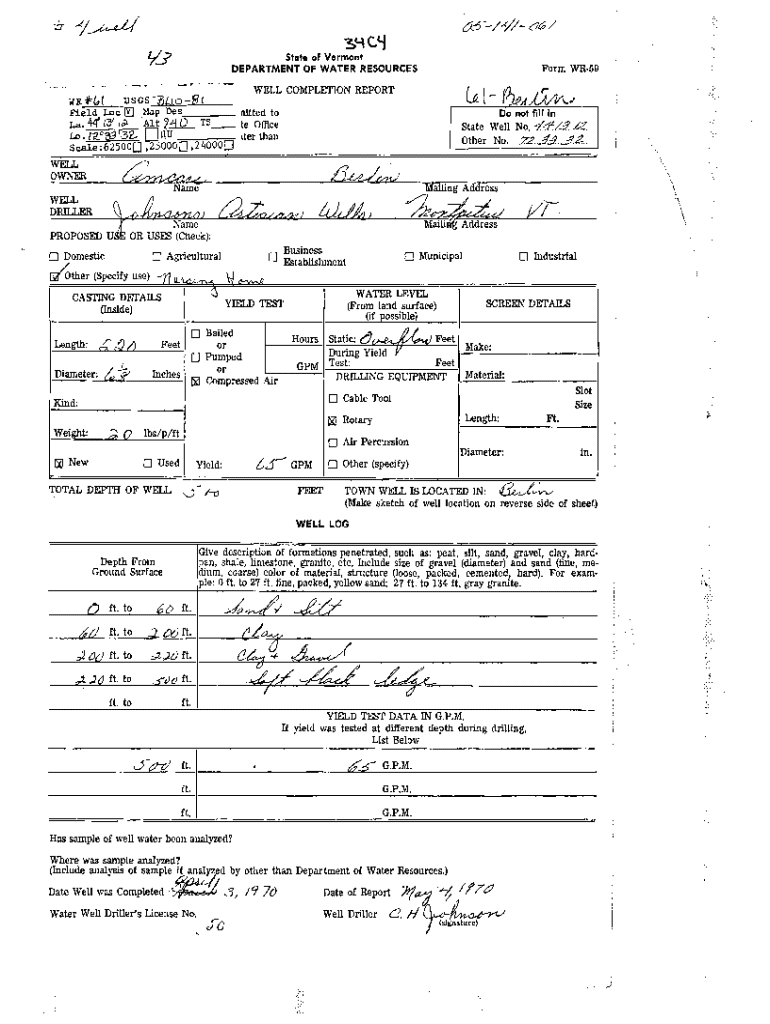 4 well
05-141-061
34C4
43
State of Vermont
DEPARTMENT OF WATER RESOURCES
Form WR-59
WELL COMPLETION REPORT
WR #61 USGS
Field Loc Map Des
mitted to
Do not fill in
La. 44 13 12 Alt 940 TS
te Office
State Well No. 44 13 12
Lo. 72 33 32
iter than
Other No. 72 33 32
Scale: 62500 , 25000 , 24000
WELL
OWNER Berlin
Name Mailing Address
WELL
DRILLER Johnsons Artesian Wells Montpelier VT.
Name Mailing Address
PROPOSED USE OR USES (Check):
Domestic Agricultural Business Establishment Municipal Industrial
Other (Specify use) - Nursing Home
CASTING DETAILS (Inside) YIELD TEST WATER LEVEL (From land surface) (if possible) SCREEN DETAILS
Length: 220 Feet
Diameter: Inches
Kind:
Weight: 20 lbs/p/ft
New Used
Bailed
or
Pumped
or
Compressed Air
Hours
GPM
Yield: 65 GPM
Static: Overflow Feet
During Yield
Test: Feet
DRILLING EQUIPMENT
Cable Tool
Rotary
Air Percussion
Other (specify)
Make:
Material:
Slot
Size
Length: Ft.
Diameter: in.
TOTAL DEPTH OF WELL FEET TOWN WELL IS LOCATED IN: Berlin
(Make sketch of well location on reverse side of sheet)
WELL LOG
Depth From
Ground Surface
Give description of formations penetrated, such as: peat, silt, sand, gravel, clay, hard-
pan, shale, limestone, granite, etc. Include size of gravel (diameter) and sand (fine, me-
dium, coarse) color of material, structure (loose, packed, cemented, hard). For exam-
ple: 0 ft. to 27 ft. fine, packed, yellow sand; 27 ft. to 134 ft. gray granite.
0 ft. to 60 ft. Sand + Silt
60 ft. to 200 ft. Clay
200 ft. to 220 ft. Clay + Gravel
220 ft. to 500 ft. Soft black ledge
ft. to ft.
YIELD TEST DATA IN G.P.M.
If yield was tested at different depth during drilling,
List Below
500 ft. 65 G.P.M.
ft. G.P.M.
ft. G.P.M.
Has sample of well water been analyzed?
Where was sample analyzed?
(Include analysis of sample if analyzed by other than Department of Water Resources.)
April
Date Well was Completed 3, 1970 Date of Report May 4, 1970
Water Well Driller's License No. 50 Well Driller C. H Johnson
(signature)